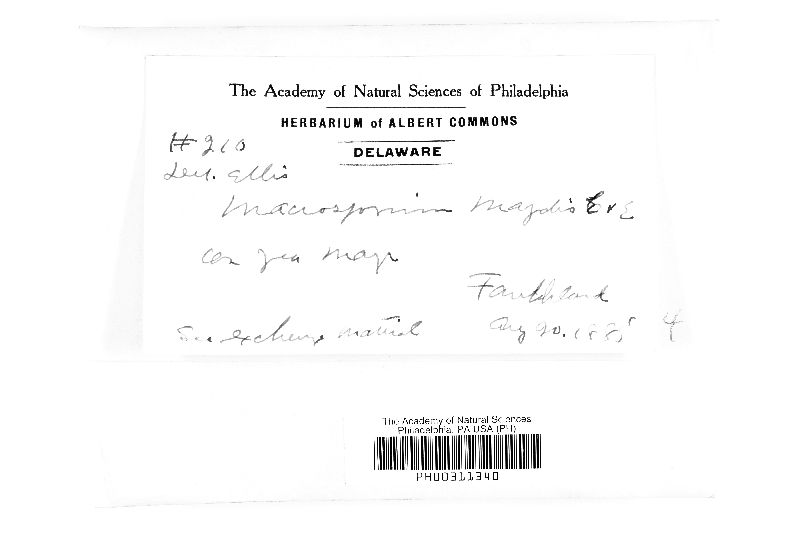 The Academy of Natural Sciences of Philadelphia
HERBARIUM of ALBERT COMMONS
DELAWARE
# 210
Det. Ellis
Macrosporium Maydis C & E
on Zea mays
Faulkland
See exchange material Aug 20. 1885 4
The Academy of Natural Sciences
Philadelphia, PA USA (PH)
PH00311340